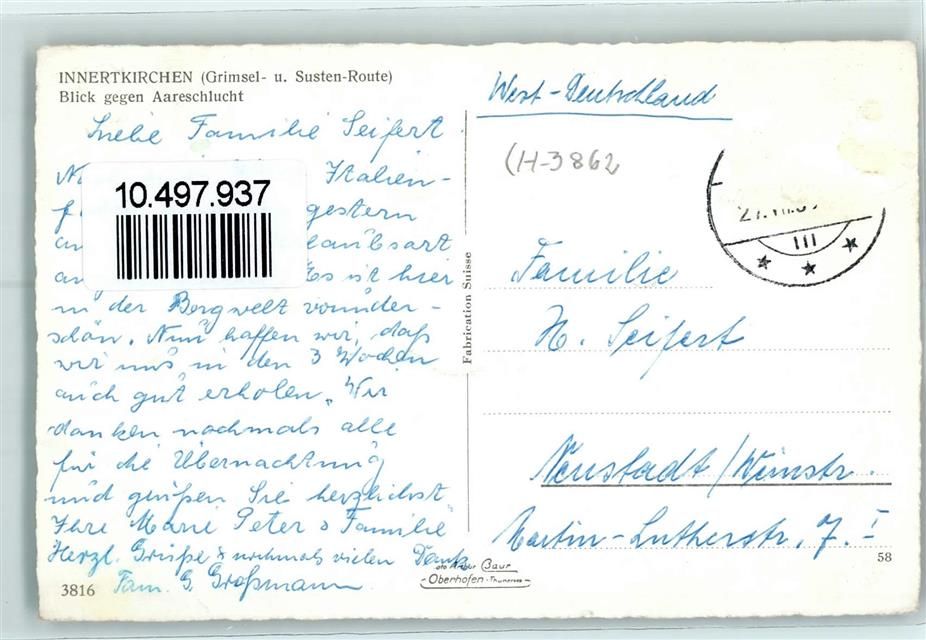 INNERTKIRCHEN (Grimsel- u. Susten-Route)
Blick gegen Aareschlucht
Liebe Familie Seifert
Italien-
gestern
laubsart
Es ist hier
in der Bergwelt wunder-
schön. Nun hoffen wir, daß
wir uns in den 3 Wochen
auch gut erholen. Wir
danken nochmals alle
für die Übernachtung
und grüßen Sie herzlichst
Ihre Marie Peter & Familie
Herzl. Grüße & nochmals vielen Dank
Fam. G. Großmann
3816
10.497.937
Fabrication Suisse
Baur
Oberhofen-Thunersee
West-Deutschland
(H-3862
III
Familie
H. Seifert
Neustadt/Weinstr.
Martin-Lutherstr. 7. I
58